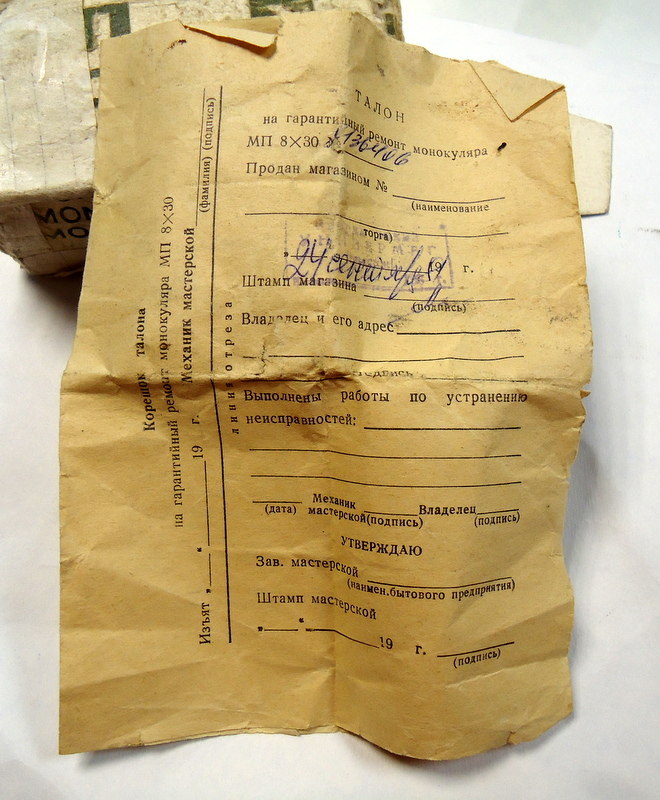 ТАЛОН
на гарантийный ремонт монокуляра
МП 8×30 № 136406
Продан магазином №
(наименование
торга)
„24 сентября 19 г.
Штамп магазина
(подпись)
Владелец и его адрес
подпись
Выполнены работы по устранению
неисправностей:
Механик Владелец
(дата) мастерской(подпись) (подпись)
УТВЕРЖДАЮ
Зав. мастерской
(наимен.бытового предприятия)
Штамп мастерской
„ “ 19 г.
(подпись)
линия отреза
Корешок талона
на гарантийный ремонт монокуляра МП 8×30
Изъят „ “ 19 г. Механик мастерской
(фамилия) (подпись)